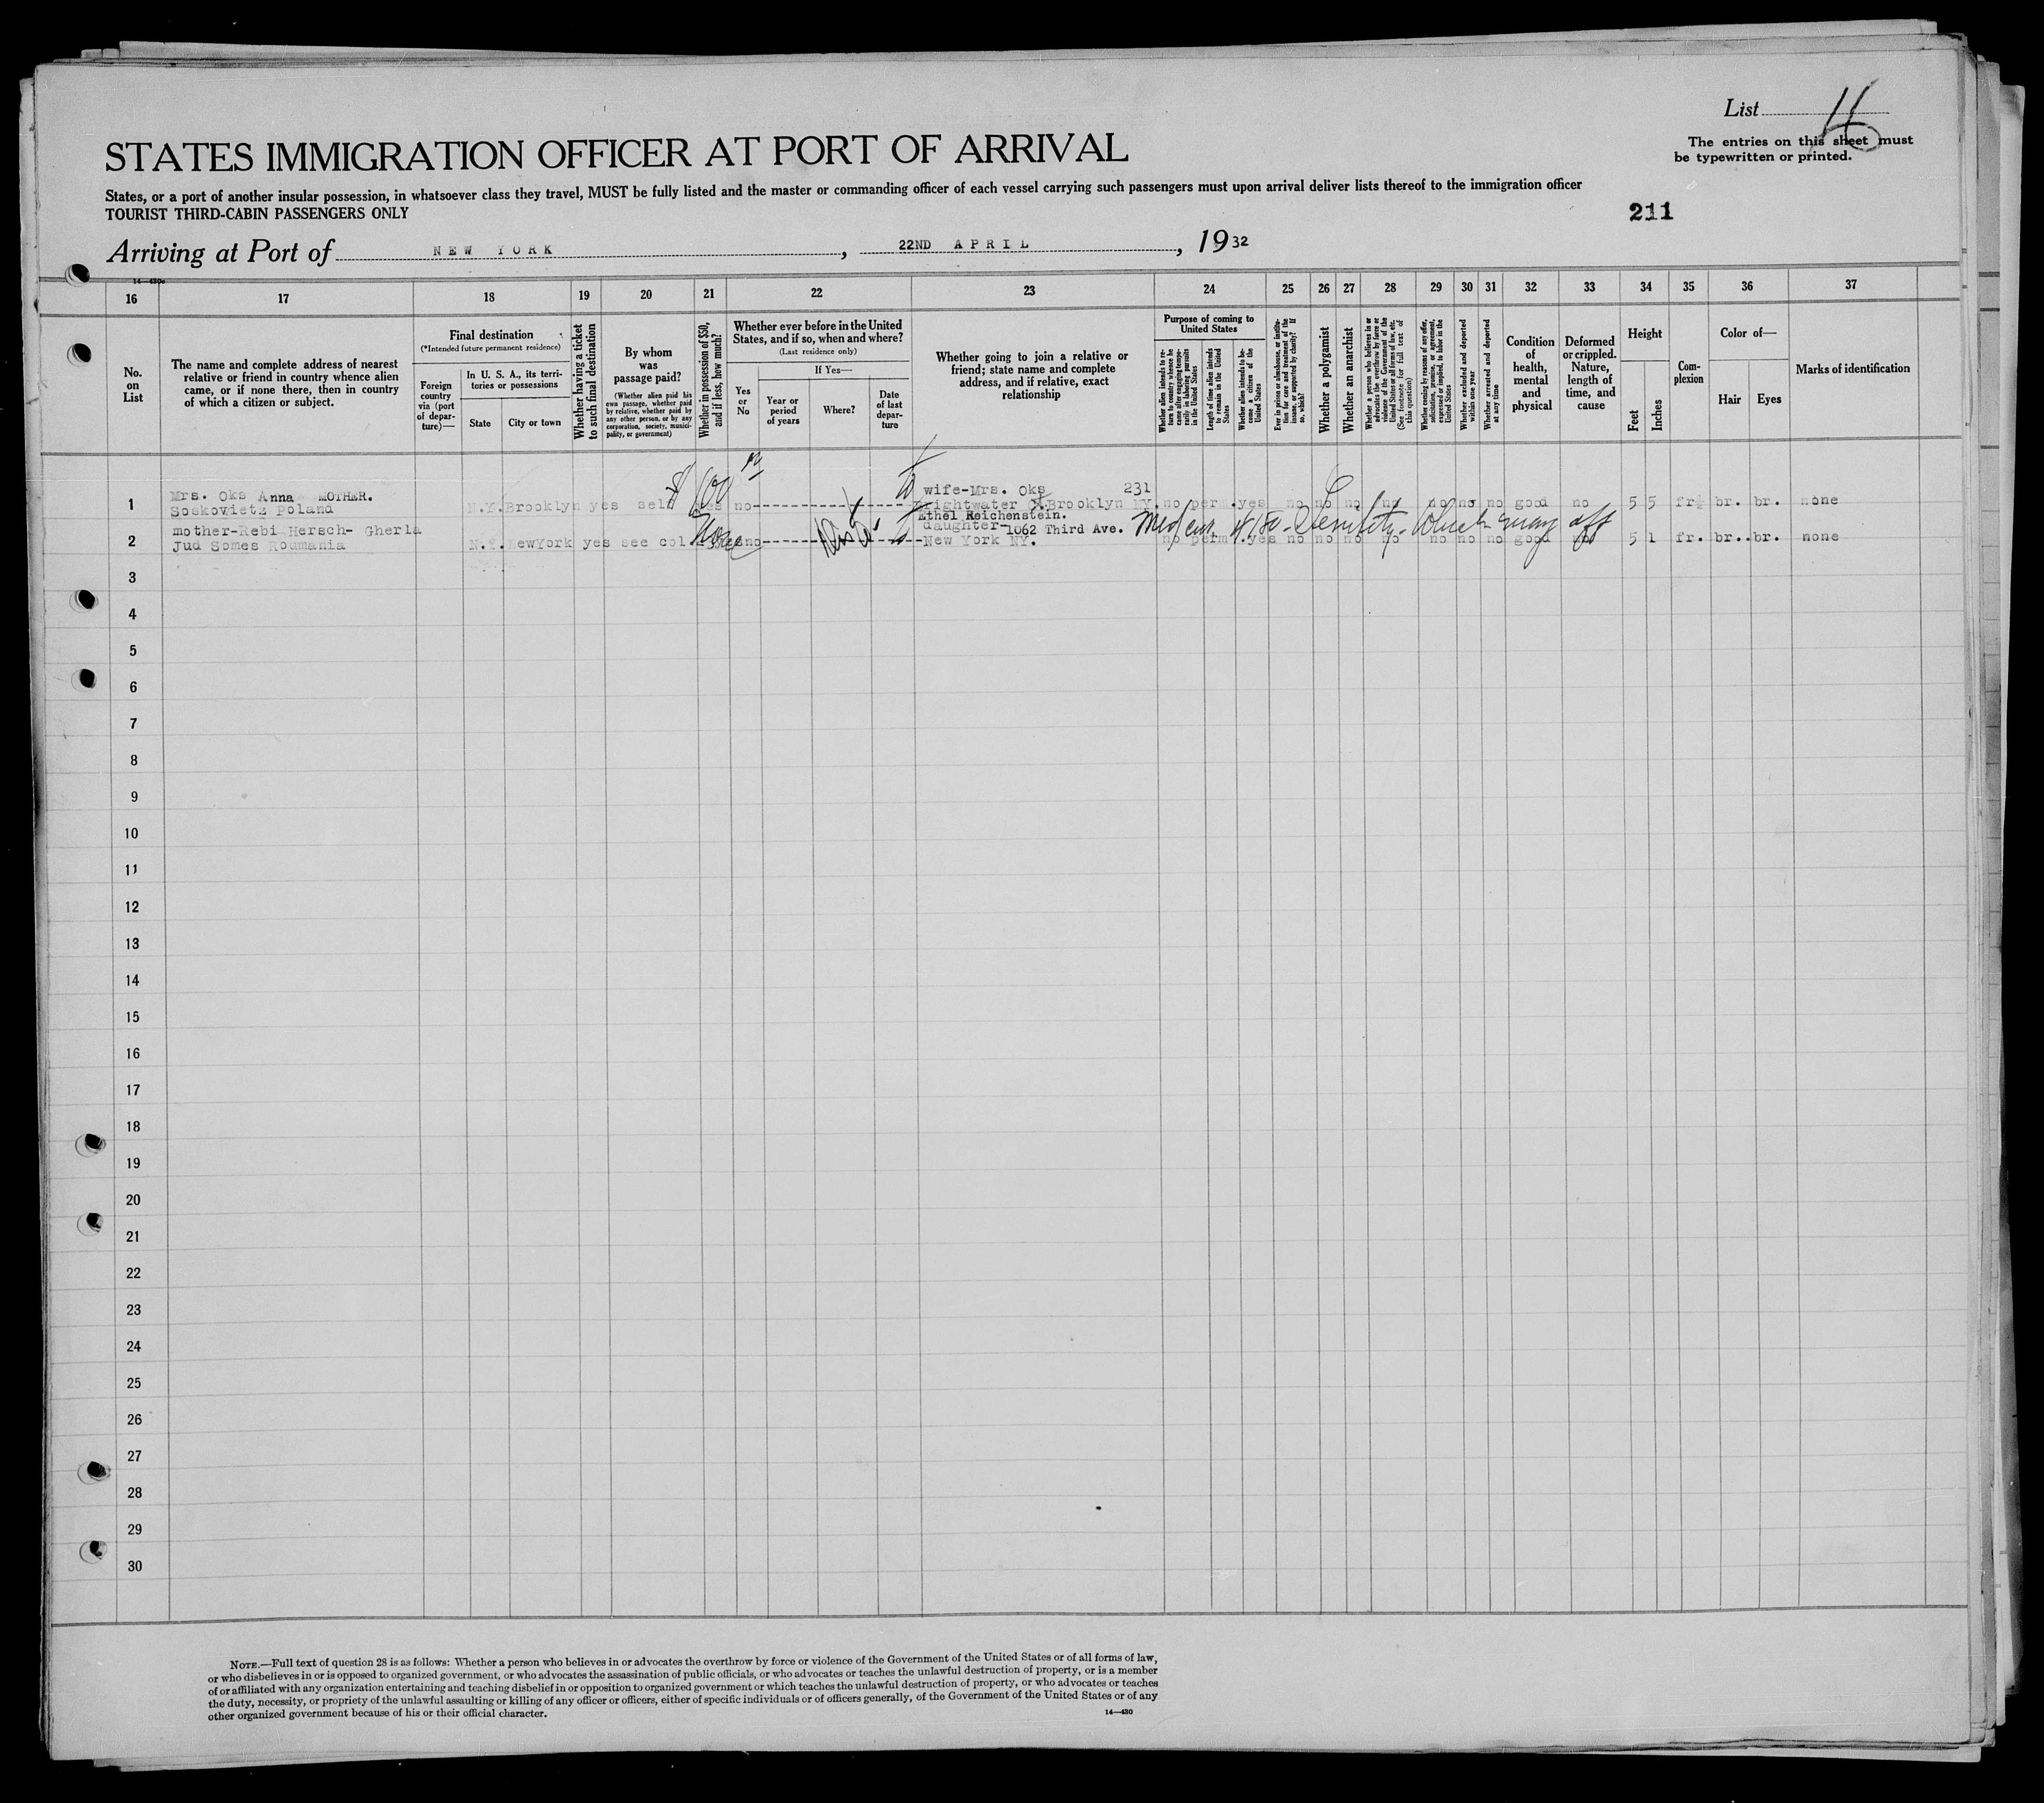 List 4
The entries on this sheet must
be typewritten or printed.
STATES IMMIGRATION OFFICER AT PORT OF ARRIVAL
States, or a port of another insular possession, in whatsoever class they travel, MUST be fully listed and the master or commanding officer of each vessel carrying such passengers must upon arrival deliver lists thereof to the immigration officer
TOURIST THIRD-CABIN PASSENGERS ONLY
211
Arriving at Port of NEW YORK, 22ND APRIL, 1932
14—430c
16 17 18 19 20 21 22 23 24 25 26 27 28 29 30 31 32 33 34 35 36 37
No. on List
The name and complete address of nearest
relative or friend in country whence alien
came, or if none there, then in country
of which a citizen or subject.
Final destination
(*Intended future permanent residence)
Foreign country via (port of departure)—
In U. S. A., its territories or possessions
State
City or town
Whether having a ticket to such final destination
By whom was passage paid?
(Whether alien paid his own passage, whether paid by relative, whether paid by any other person, or by any corporation, society, municipality, or government)
Whether in possession of $50, and if less, how much?
Whether ever before in the United States, and if so, when and where?
(Last residence only)
Yes or No
If Yes—
Year or period of years
Where?
Date of last departure
Whether going to join a relative or
friend; state name and complete
address, and if relative, exact
relationship
Purpose of coming to United States
Whether alien intends to return to country whence he came after engaging temporarily in laboring pursuits in the United States
Length of time alien intends to remain in the United States
Whether alien intends to become a citizen of the United States
Ever in prison or almshouse, or institution for care and treatment of the insane, or supported by charity? If so, which?
Whether a polygamist
Whether an anarchist
Whether a person who believes in or advocates the overthrow by force or violence of the Government of the United States or all forms of law, etc. (See footnote for full text of this question)
Whether coming by reasons of any offer, solicitation, promise, or agreement, expressed or implied, to labor in the United States
Whether excluded and deported within one year
Whether arrested and deported at any time
Condition of health, mental and physical
Deformed or crippled. Nature, length of time, and cause
Height
Feet
Inches
Complexion
Color of—
Hair
Eyes
Marks of identification
Mrs. Oks Anna MOTHER. $100 wife-Mrs. Oks 231
1 Soskovietz Poland N.Y. Brooklyn yes self yes no Brightwater Brooklyn NY. no perm. yes no no no no no no no good no 5 5 fr. br. br. none
Ethel Reichenstein.
mother-Rebi Hersch- Gherla None daughter-1062 Third Ave. Med cert 4/80-Senility-Which may aff
2 Jud Somes Roumania N.Y. NewYork yes see col no New York NY. no perm. yes no no no no no no no good no 5 1 fr. br. br. none
3
4
5
6
7
8
9
10
11
12
13
14
15
16
17
18
19
20
21
22
23
24
25
26
27
28
29
30
NOTE.—Full text of question 28 is as follows: Whether a person who believes in or advocates the overthrow by force or violence of the Government of the United States or of all forms of law,
or who disbelieves in or is opposed to organized government, or who advocates the assassination of public officials, or who advocates or teaches the unlawful destruction of property, or is a member
of or affiliated with any organization entertaining and teaching disbelief in or opposition to organized government or which teaches the unlawful destruction of property, or who advocates or teaches
the duty, necessity, or propriety of the unlawful assaulting or killing of any officer or officers, either of specific individuals or of officers generally, of the Government of the United States or of any
other organized government because of his or their official character.
14—430